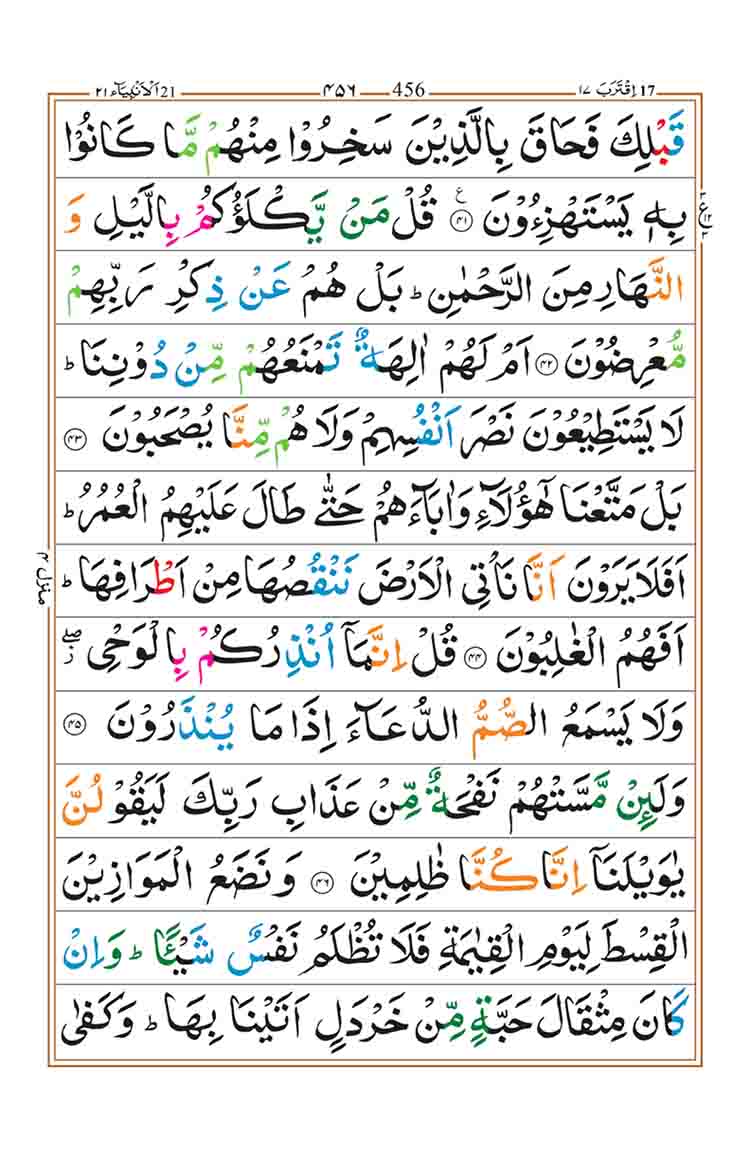 اِقْتَرَبَ ١٧ 17 ۴۵۶ 456 اَلْاَنْۢبِيَآء ٢١ 21
قَبْلِكَ فَحَاقَ بِالَّذِيْنَ سَخِرُوْا مِنْهُمْ مَّا كَانُوْا
بِهٖ يَسْتَهْزِءُوْنَ ۴۱ ع قُلْ مَنْ يَّكْلَؤُكُمْ بِالَّيْلِ وَ
النَّهَارِ مِنَ الرَّحْمٰنِ ؕ بَلْ هُمْ عَنْ ذِكْرِ رَبِّهِمْ
مُّعْرِضُوْنَ ۴۲ اَمْ لَهُمْ اٰلِهَةٌ تَمْنَعُهُمْ مِّنْ دُوْنِنَا ؕ
لَا يَسْتَطِيْعُوْنَ نَصْرَ اَنْفُسِهِمْ وَلَا هُمْ مِّنَّا يُصْحَبُوْنَ ۴۳
بَلْ مَتَّعْنَا هٰٓؤُلَآءِ وَاٰبَآءَهُمْ حَتّٰى طَالَ عَلَيْهِمُ الْعُمُرُ ؕ
اَفَلَا يَرَوْنَ اَنَّا نَاْتِى الْاَرْضَ نَنْقُصُهَا مِنْ اَطْرَافِهَا ؕ
اَفَهُمُ الْغٰلِبُوْنَ ۴۴ قُلْ اِنَّمَآ اُنْذِرُكُمْ بِالْوَحْىِ ۖز
وَلَا يَسْمَعُ الصُّمُّ الدُّعَآءَ اِذَا مَا يُنْذَرُوْنَ ۴۵
وَلَئِنْ مَّسَّتْهُمْ نَفْحَةٌ مِّنْ عَذَابِ رَبِّكَ لَيَقُوْلُنَّ
يٰوَيْلَنَآ اِنَّا كُنَّا ظٰلِمِيْنَ ۴۶ وَنَضَعُ الْمَوَازِيْنَ
الْقِسْطَ لِيَوْمِ الْقِيٰمَةِ فَلَا تُظْلَمُ نَفْسٌ شَيْئًا ؕ وَاِنْ
كَانَ مِثْقَالَ حَبَّةٍ مِّنْ خَرْدَلٍ اَتَيْنَا بِهَا ؕ وَكَفٰى
ع ٣ ١٢ ٣
منزل ۴